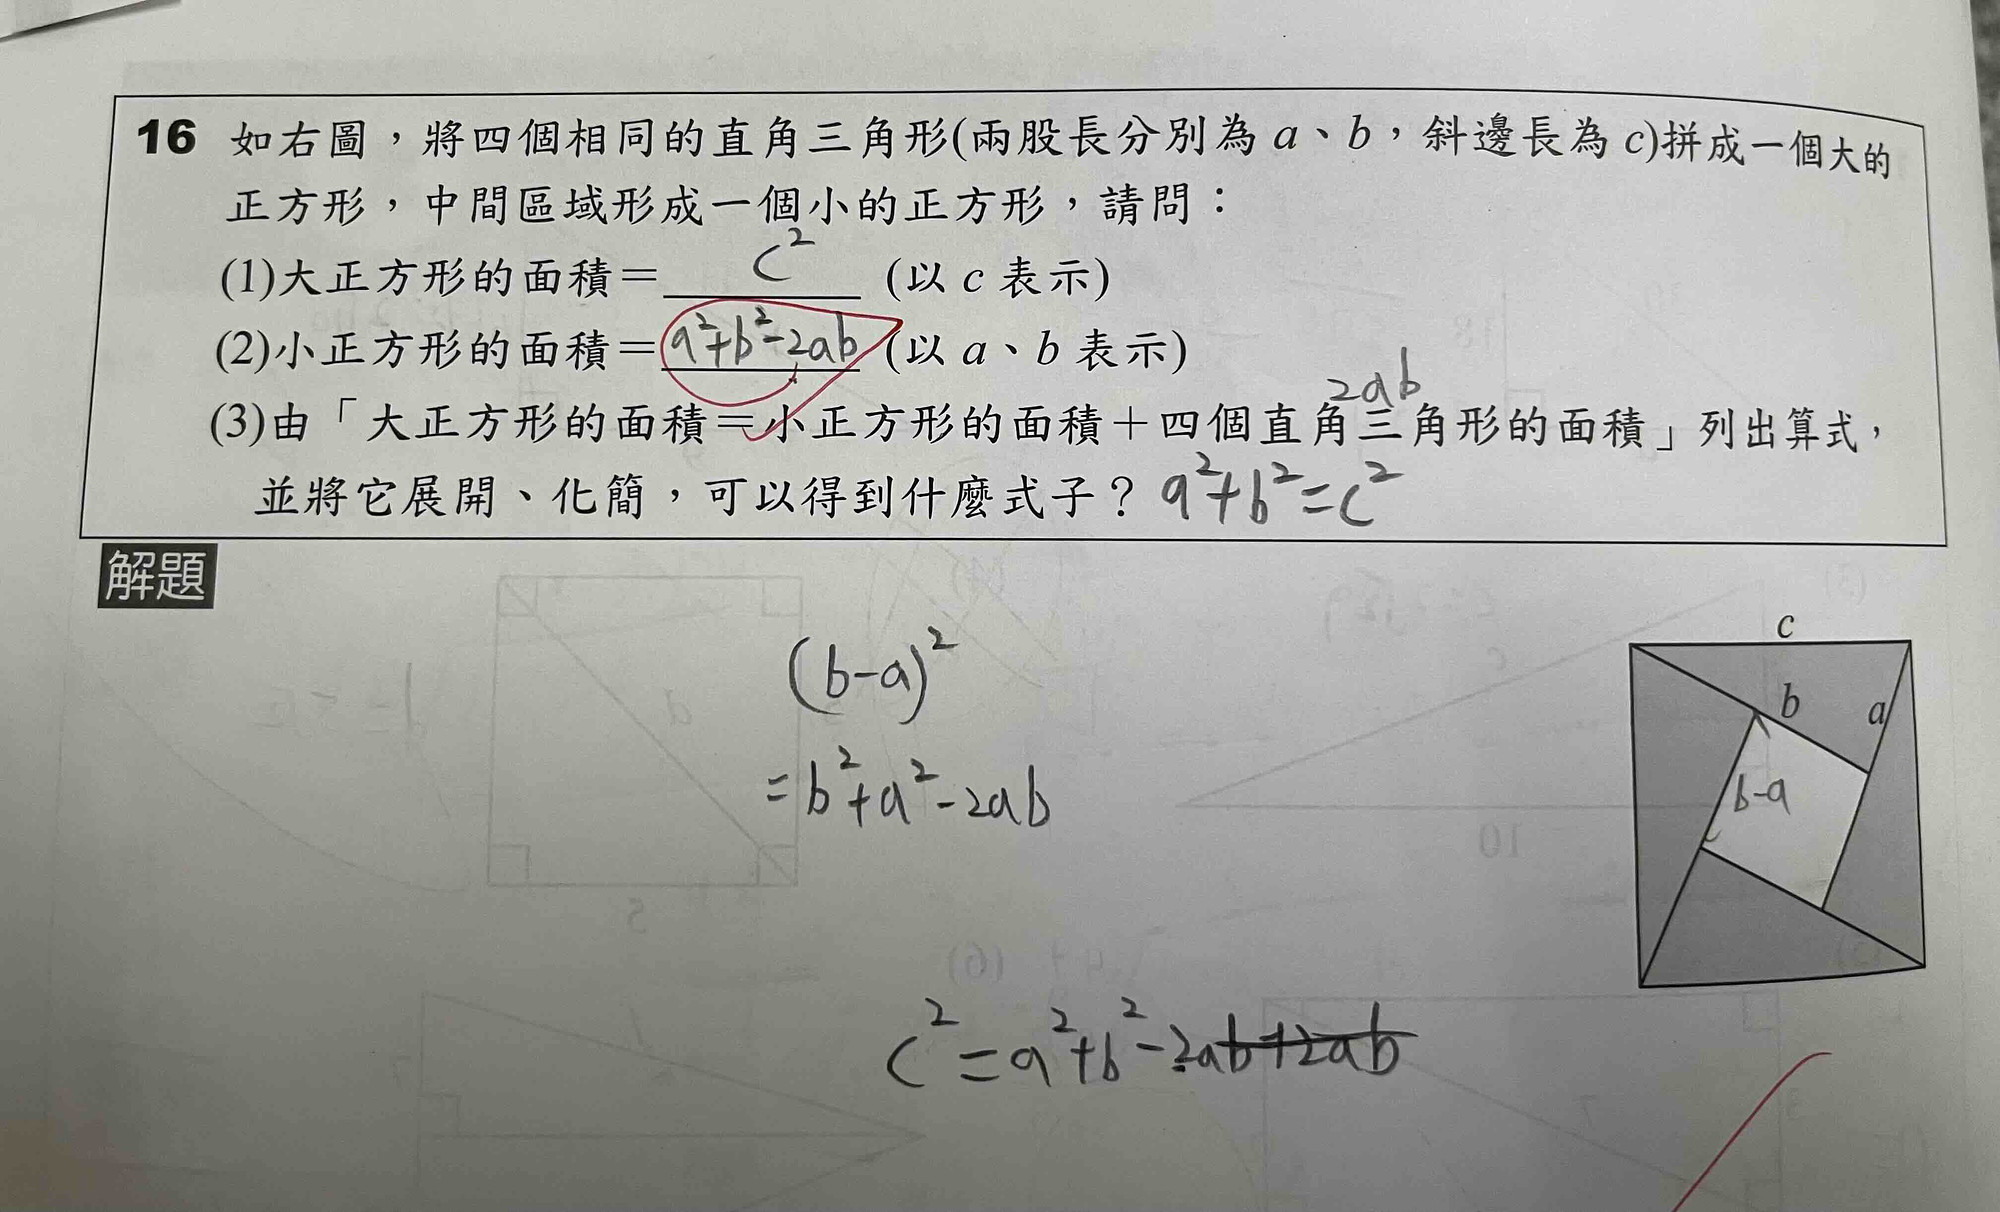 16 如右圖，將四個相同的直角三角形(兩股長分別為 a、b，斜邊長為 c)拼成一個大的
正方形，中間區域形成一個小的正方形，請問：
(1)大正方形的面積＝ c² (以 c 表示)
(2)小正方形的面積＝ a²+b²-2ab (以 a、b 表示)
2ab
(3)由「大正方形的面積＝小正方形的面積＋四個直角三角形的面積」列出算式，
並將它展開、化簡，可以得到什麼式子？ a²+b²=c²
解題
(b-a)²
=b²+a²-2ab
c²=a²+b²-2ab+2ab
c
b
a
b-a